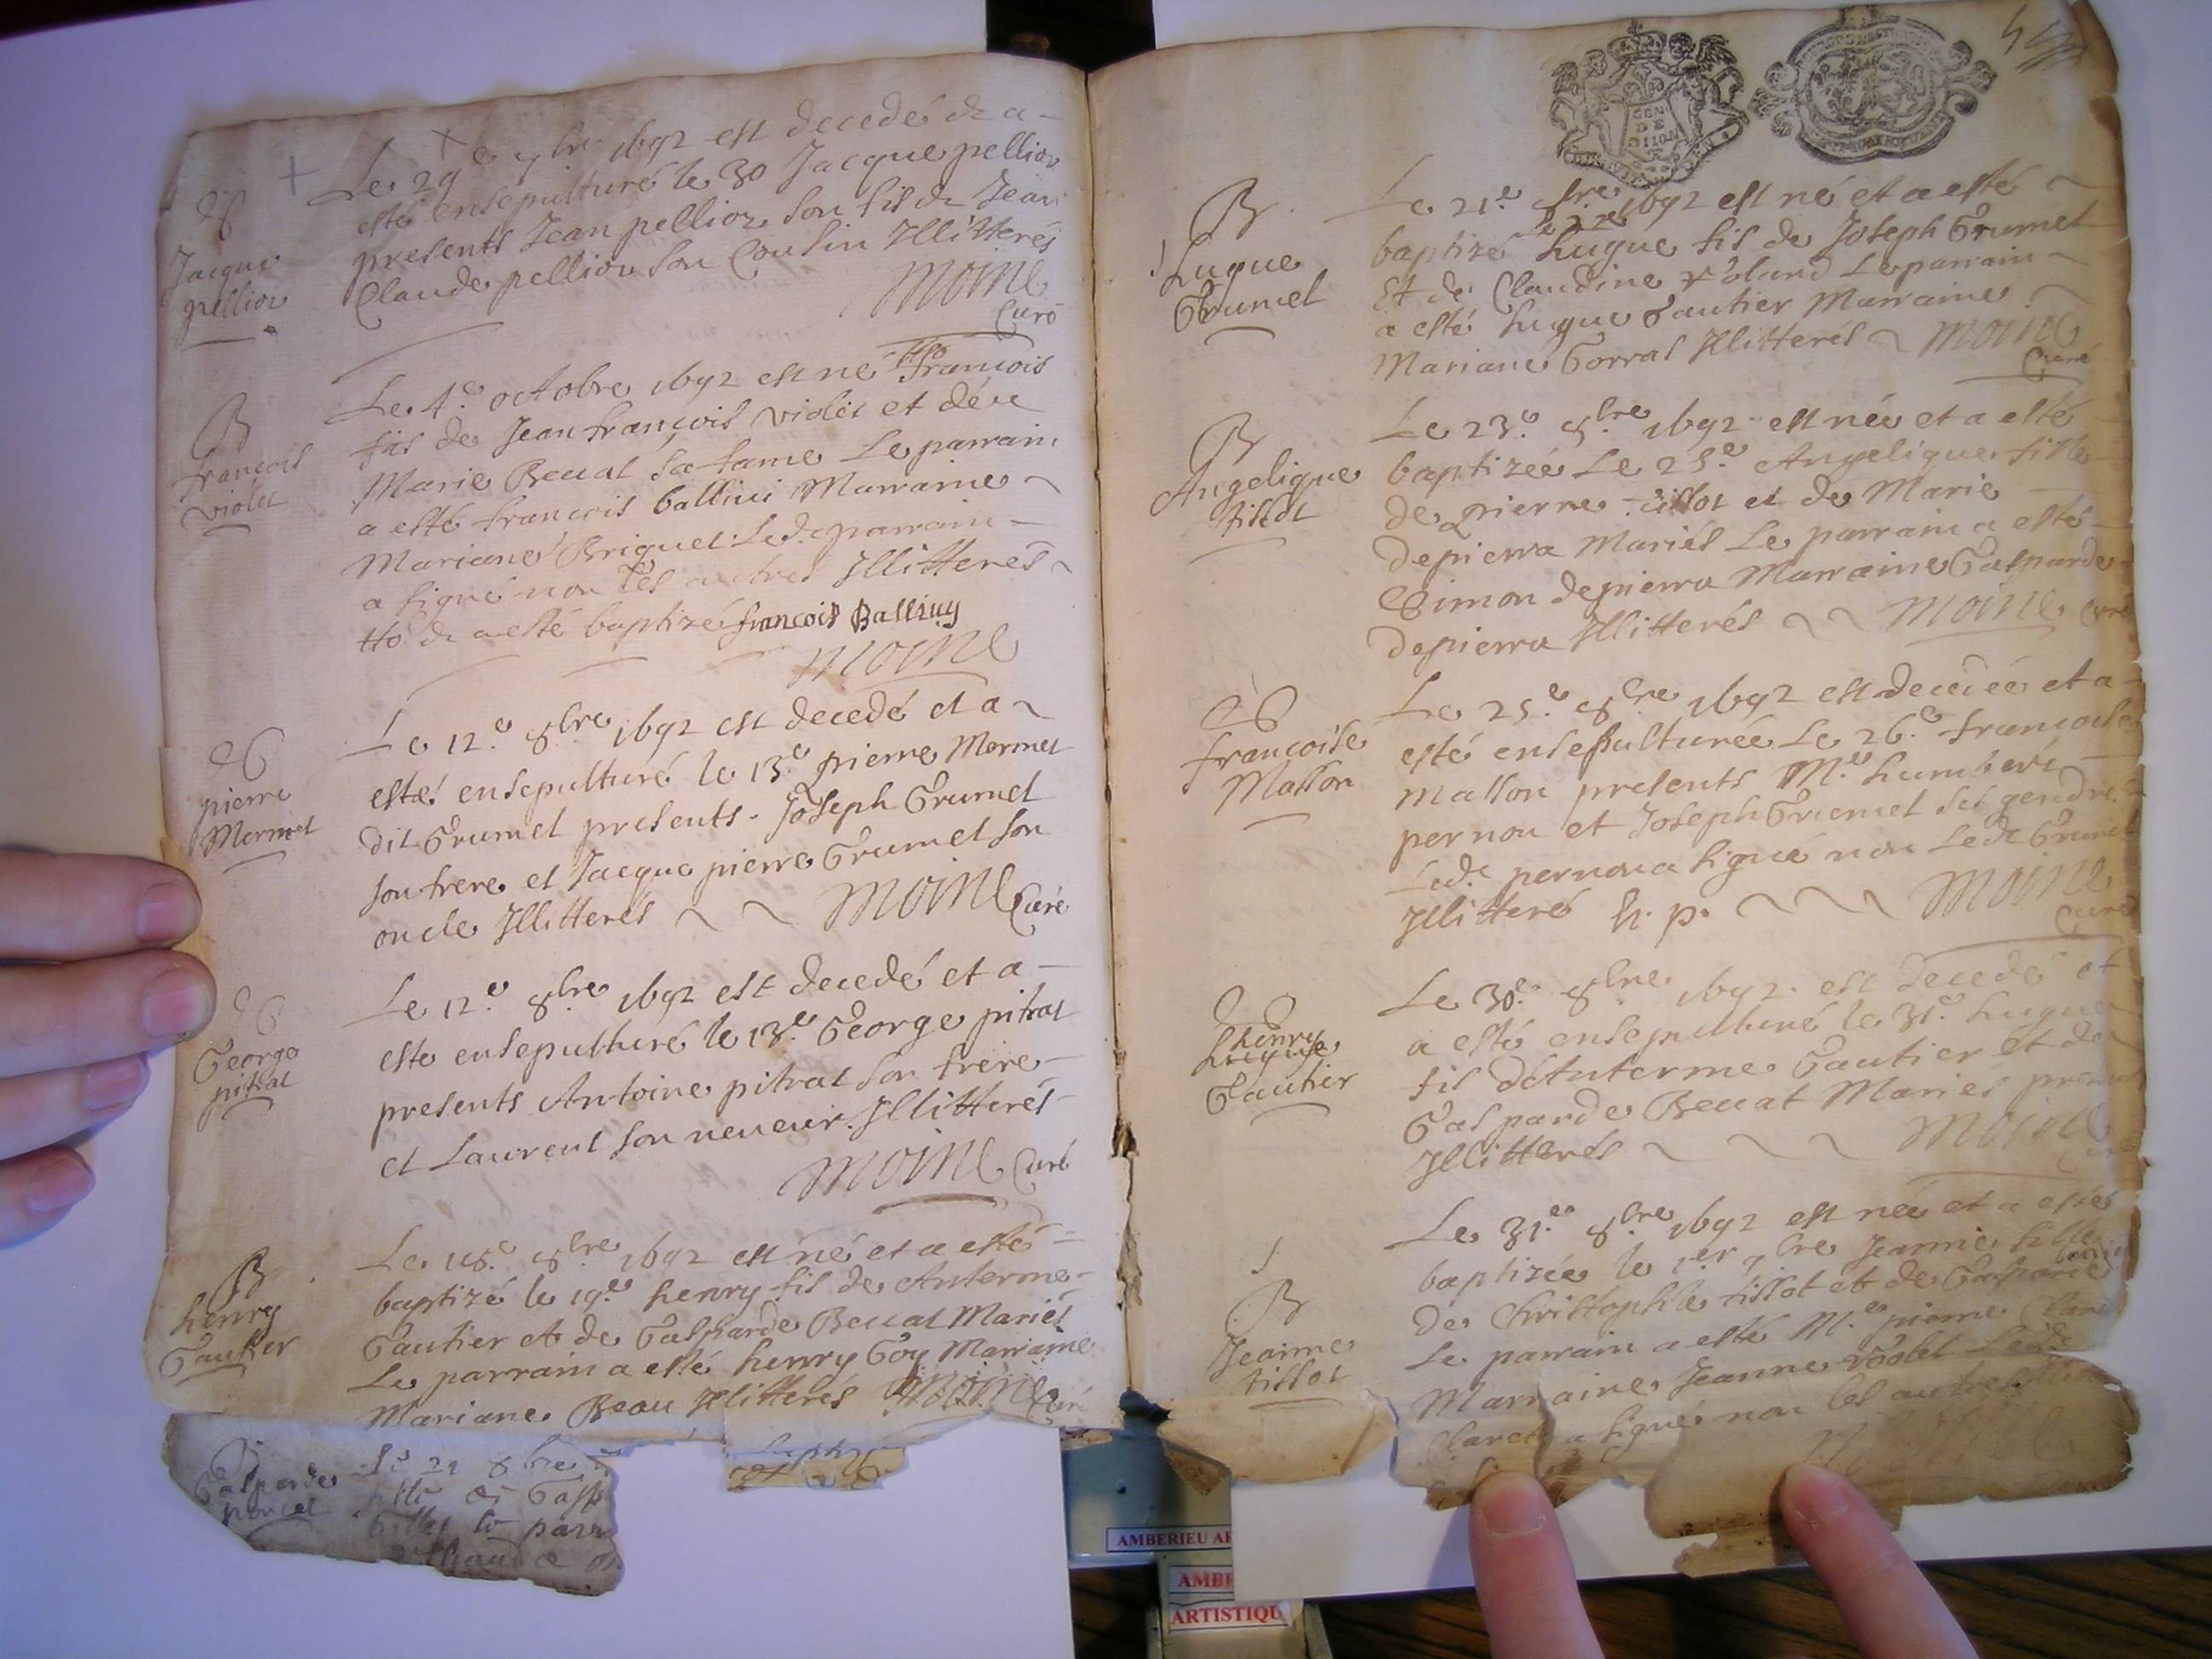 Jacque
pellion
Le 29e 7bre 1692 est decedé & a
esté ensepulturé le 30 Jacque pellion
presents Jean pellion son fis & Jean
Claude pellion son Cousin Jllitterés
Moine
Curé
B
françois
violet
Le 4.e octobre 1692 est né François
fis de Jean françois violet et de
Marie Beuat sa fame Le parrain
a esté françois Ballini Marraine
Mariane Briquet Led. parrain
a signé non les autres Jllitterés
& a esté baptizé françois Balliuy
Moine
pierre
Mermet
Le 12.e 8bre 1692 est decedé et a
esté ensepulturé le 13.e pierre Mermet
dit Grumel presents Joseph Grumel
son frere et Jacque pierre Grumel son
oncle Jllitterés Moine Curé
George
pitrat
Le 12.e 8bre 1692 est decedé et a
esté ensepulturé le 13.e George pitrat
presents Antoine pitrat son frere
et Laurent son neueur Jllitterés
Moine Curé
B
henry
Gautier
Le 18.e 8bre 1692 est né et a esté
baptizé le 19.e henry fis de Anterme
Gautier et de Gasparde Beuat Mariés
Le parrain a esté henry Goy Marraine
Mariane Beau Jllitterés Moine Curé
Gasparde
poncet
Le 21 8bre
fille de Gasp
le parr
B
hugue
Grumel
Le 21.e 8bre 1692 est né et a esté
baptizé le 22e hugue fis de Joseph Grumel
Et de Claudine Roland Le parrain
a esté hugue Gautier Marraine
Mariane Gorras Jllitterés Moine
Curé
B
Angelique
tissot
Le 23.e 8bre 1692 est née et a esté
baptizée Le 25.e Angelique fille
de pierre tissot et de Marie
depierra Mariés Le parrain a esté
Simon depierra Marraine Gasparde
depierra Jllitterés Moine Curé
françoise
Masson
Le 25.e 8bre 1692 est decedée et a
esté ensepulturée Le 26.e françoise
Masson presents M.e humbert
pernou et Joseph Grumel ses gendres
Led. pernou a signé non Led. Grumel
Jllitteré h. p. Moine
Curé
henry
hugue
Gautier
Le 30.e 8bre 1692 est decedé et
a esté ensepulturé le 31.e hugue
fis d'Anterme Gautier et de
Gasparde Beuat Mariés
Jllitterés Moine
B
Jeanne
tissot
Le 31.e 8bre 1692 est née et a esté
baptizée le 1er 9bre Jeanne fille
de Christophle tissot et de Gasparde
Le parrain a esté M.e pierre Claret
Marraine Jeanne violet Led.
Claret a signé non les autres
Moine
AMBERIEU AR
AMBE
ARTISTIQU